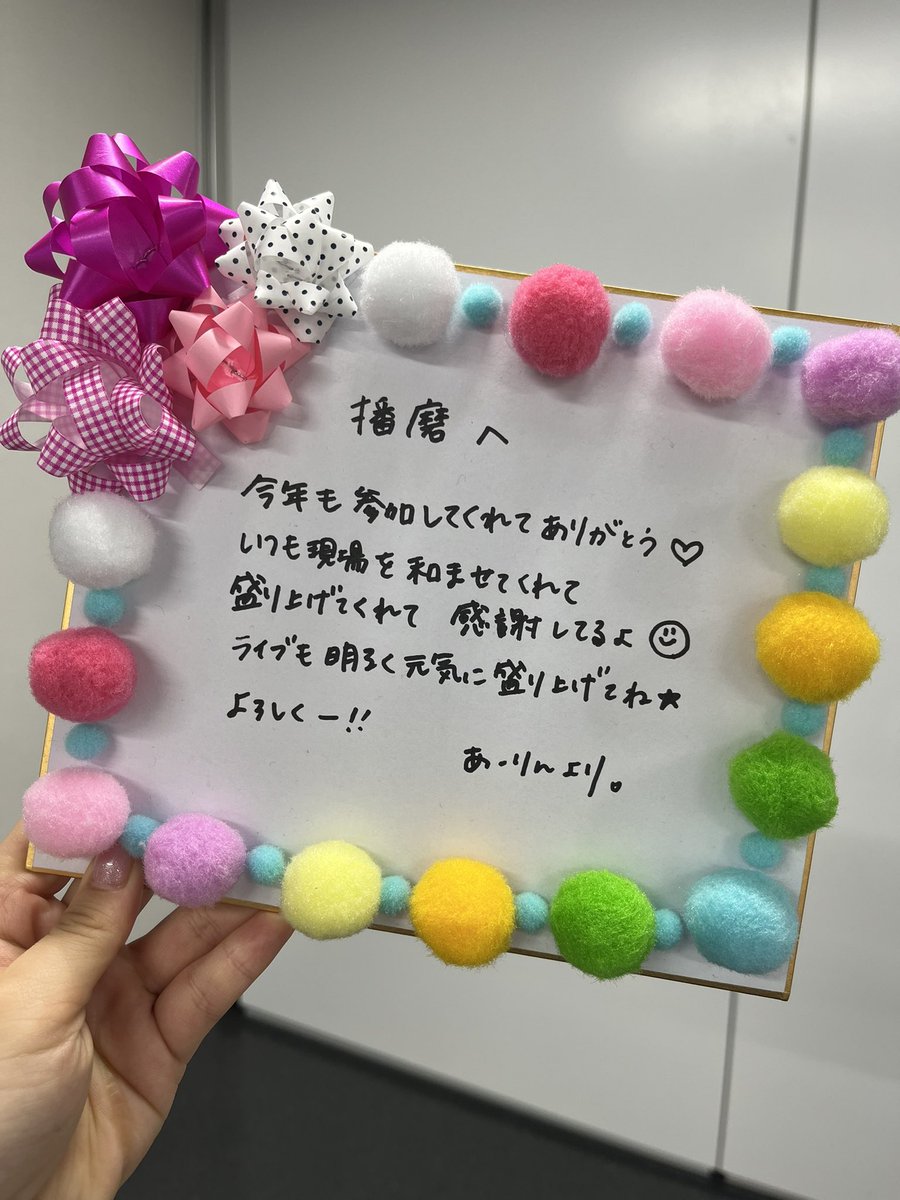 播磨へ
今年も参加してくれてありがとう♡
いつも現場を和ませてくれて
盛り上げてくれて 感謝してるよ☺
ライブも明るく元気に盛り上げてね★
よろしくー!!
あーりんより。